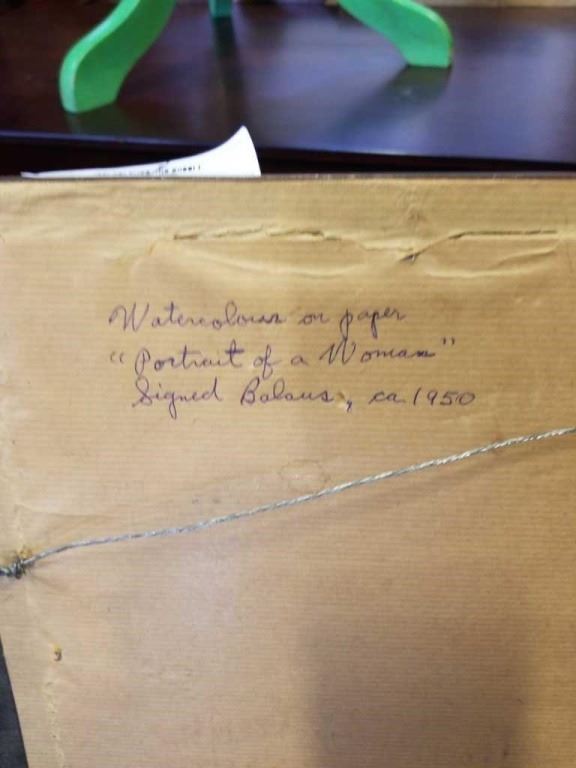 Watercolour on paper
"Portrait of a Woman"
Signed Balaus, ca. 1950